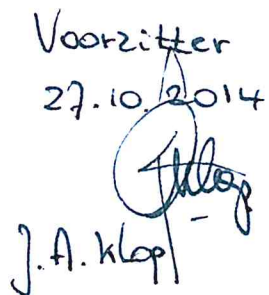 Voorzitter
27.10.2014
J.A. Klop